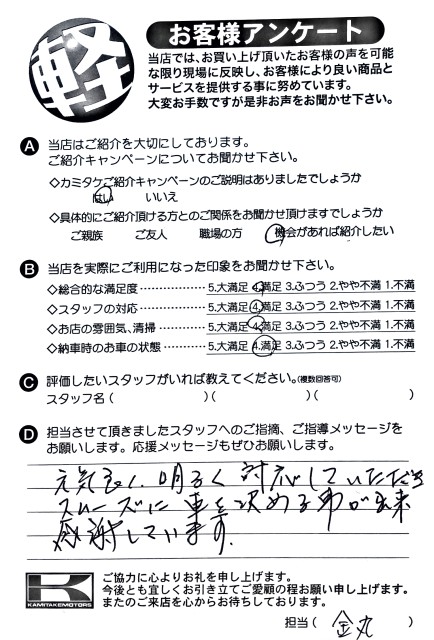 軽
お客様アンケート
当店では、お買い上げ頂いたお客様の声を可能
な限り現場に反映し、お客様により良い商品と
サービスを提供する事に努めています。
大変お手数ですが是非お声をお聞かせ下さい。
A 当店はご紹介を大切にしております。
ご紹介キャンペーンについてお聞かせ下さい。
◇カミタケご紹介キャンペーンのご説明はありましたでしょうか
はい いいえ
◇具体的にご紹介頂ける方とのご関係をお聞かせ頂けますでしょうか
ご親族 ご友人 職場の方 機会があれば紹介したい
B 当店を実際にご利用になった印象をお聞かせ下さい。
◇総合的な満足度 ‥‥‥‥‥ 5.大満足 4.満足 3.ふつう 2.やや不満 1.不満
◇スタッフの対応 ‥‥‥‥‥ 5.大満足 4.満足 3.ふつう 2.やや不満 1.不満
◇お店の雰囲気、清掃 ‥‥‥ 5.大満足 4.満足 3.ふつう 2.やや不満 1.不満
◇納車時のお車の状態 ‥‥‥ 5.大満足 4.満足 3.ふつう 2.やや不満 1.不満
C 評価したいスタッフがいれば教えてください。(複数回答可)
スタッフ名 ( )( )( )
D 担当させて頂きましたスタッフへのご指摘、ご指導メッセージを
お願いします。応援メッセージもぜひお願いします。
元気良く、明るく対応していただき
スムーズに車を決める事が出来
感謝しています。
K
KAMITAKEMOTORS
ご協力に心よりお礼を申し上げます。
今後とも宜しくお引き立てご愛顧の程お願い申し上げます。
またのご来店を心からお待ちしております。
担当 ( 金丸 )